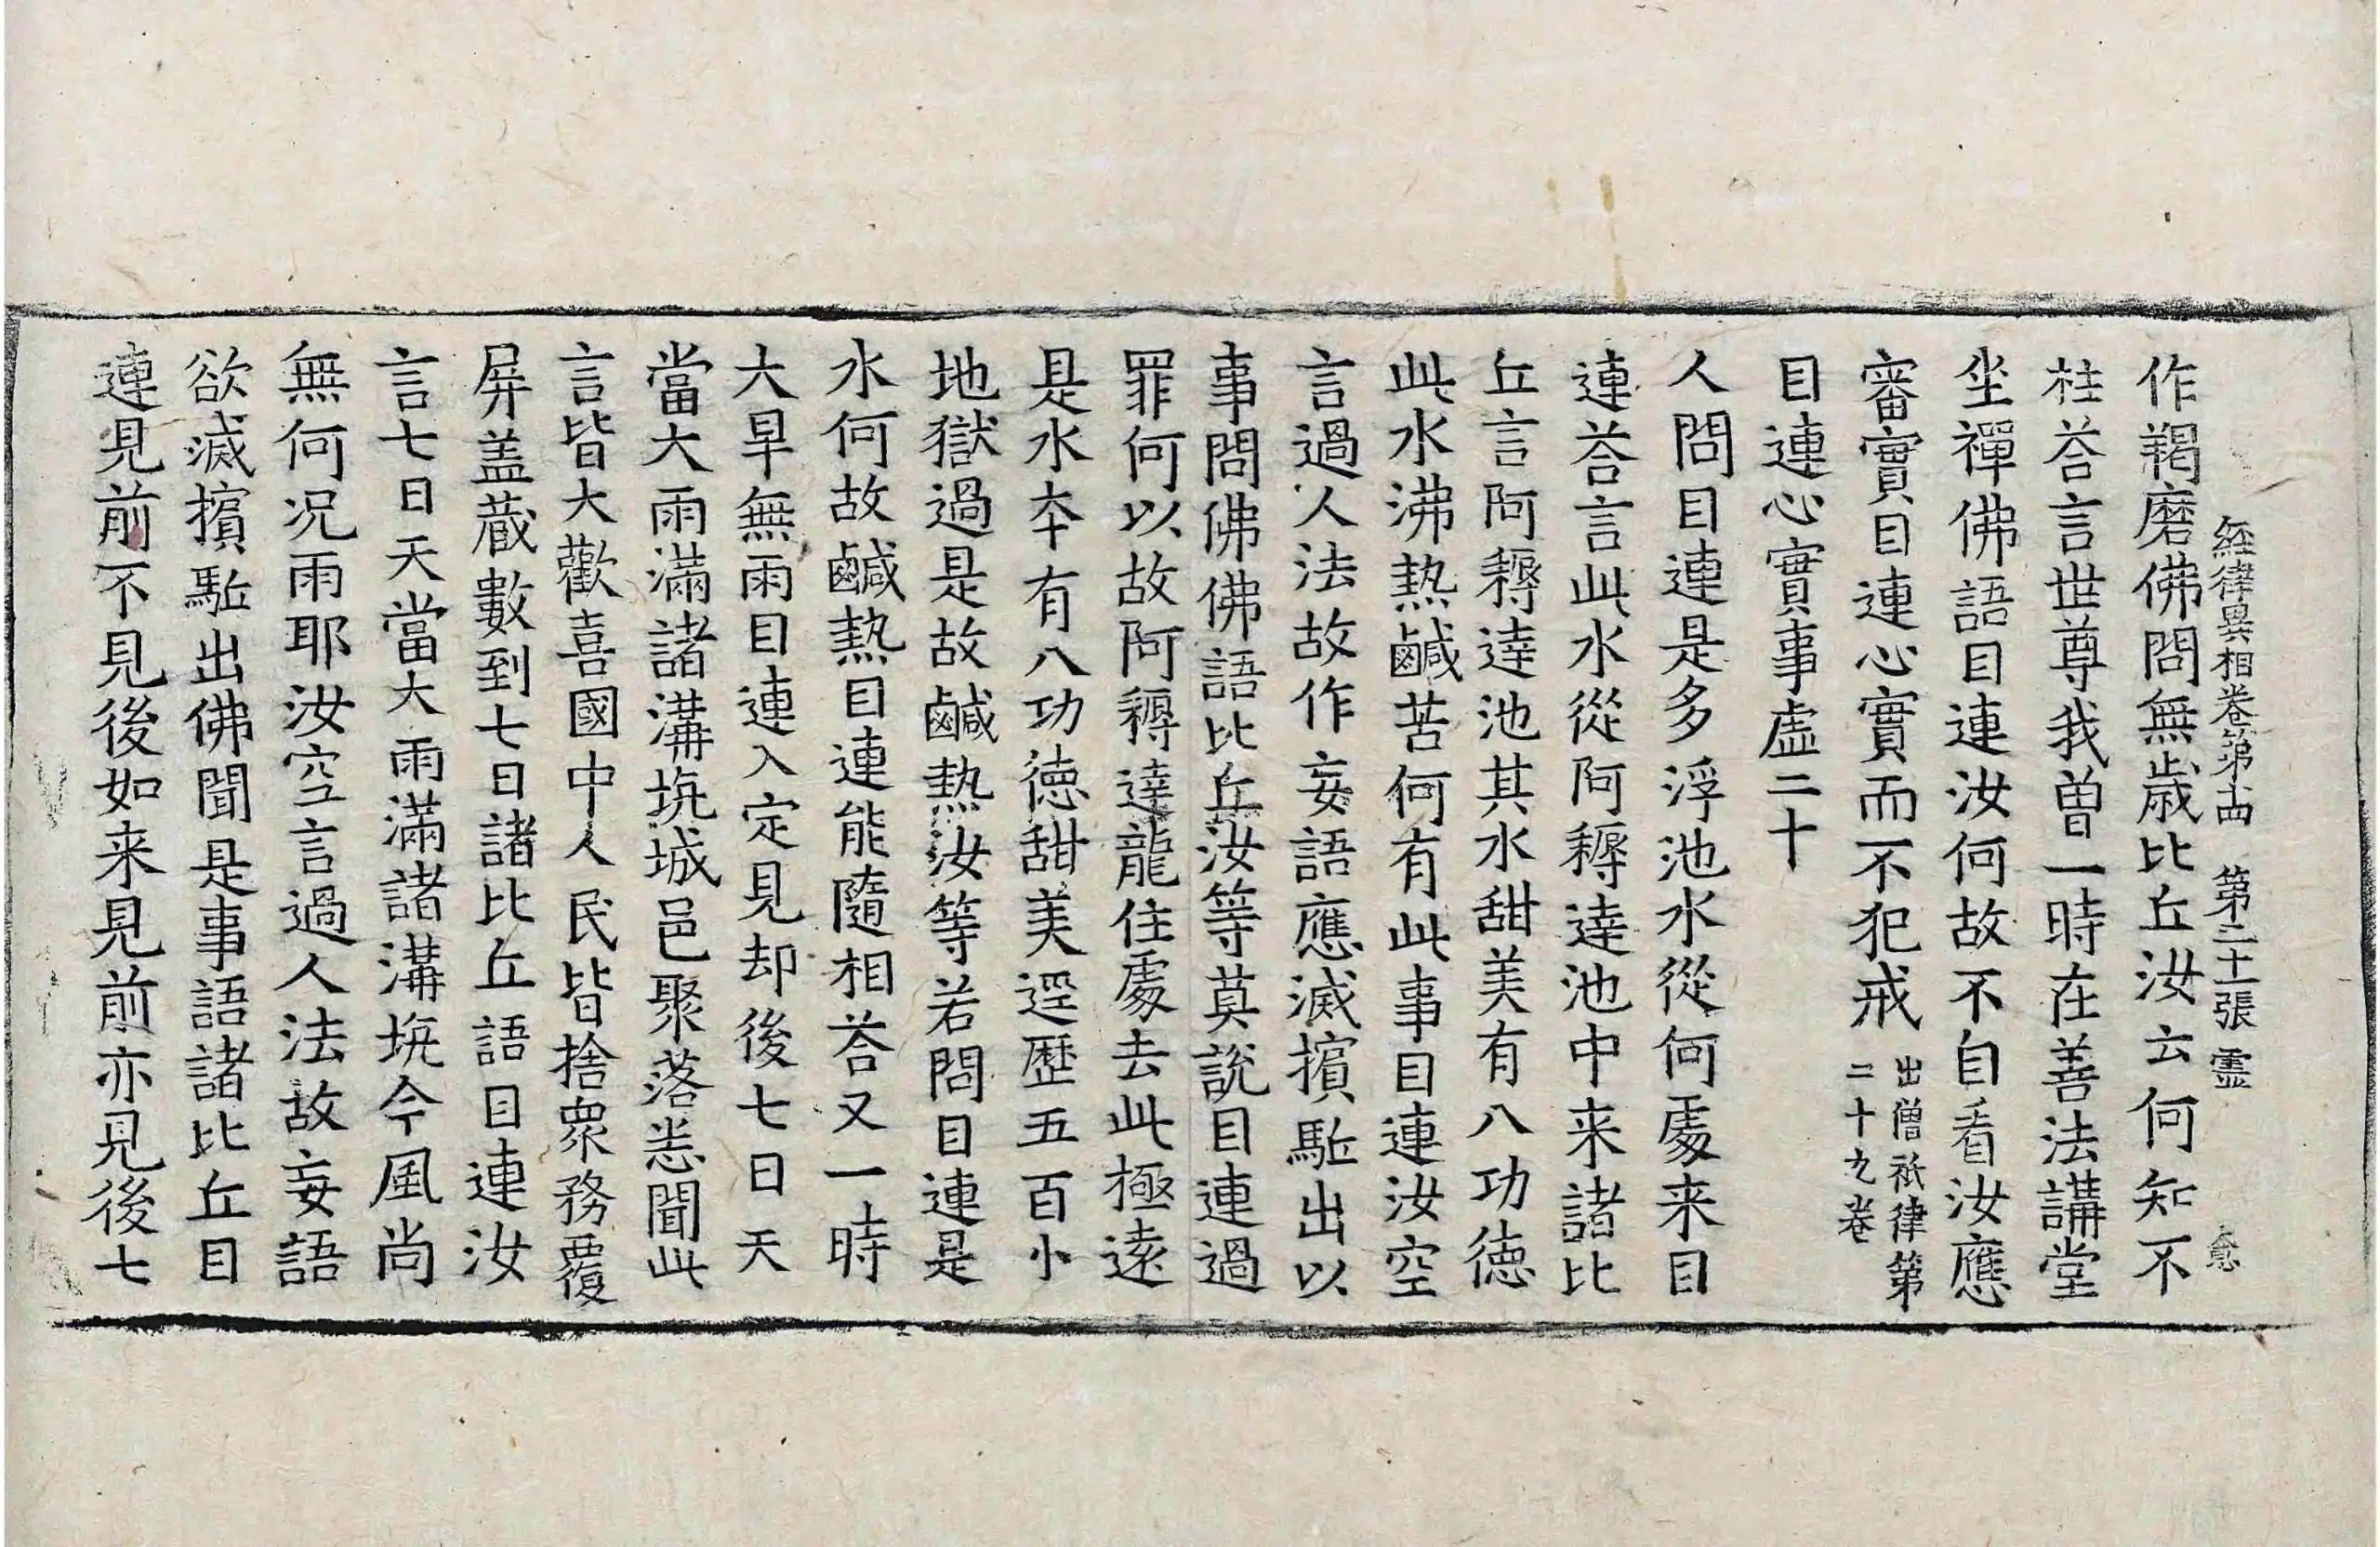 經律異相卷第十四 第二十一張 靈 愈
作羯磨佛問無歲比丘汝云何知不
柱荅言世尊我曽一時在善法講堂
坐禪佛語目連汝何故不自看汝應
審實目連心實而不犯戒 出僧祇律第二十九卷
目連心實事虛二十
人問目連是多浮池水從何處来目
連荅言此水從阿耨達池中来諸比
丘言阿耨達池其水甜美有八功德
此水沸熱鹹苦何有此事目連汝空
言過人法故作妄語應滅擯駈出以
事問佛佛語比丘汝等莫說目連過
罪何以故阿耨達龍住處去此極遠
是水本有八功德甜美逕歷五百小
地獄過是故鹹熱汝等若問目連是
水何故鹹熱目連能隨相荅又一時
大旱無雨目連入定見却後七日天
當大雨滿諸溝坑城邑聚落悉聞此
言皆大歡喜國中人民皆捨眾務覆
屏盖蔵數到七日諸比丘語目連汝
言七日天當大雨滿諸溝坑今風尚
無何况雨耶汝空言過人法故妄語
欲滅擯駈出佛聞是事語諸比丘目
連見前不見後如来見前亦見後七